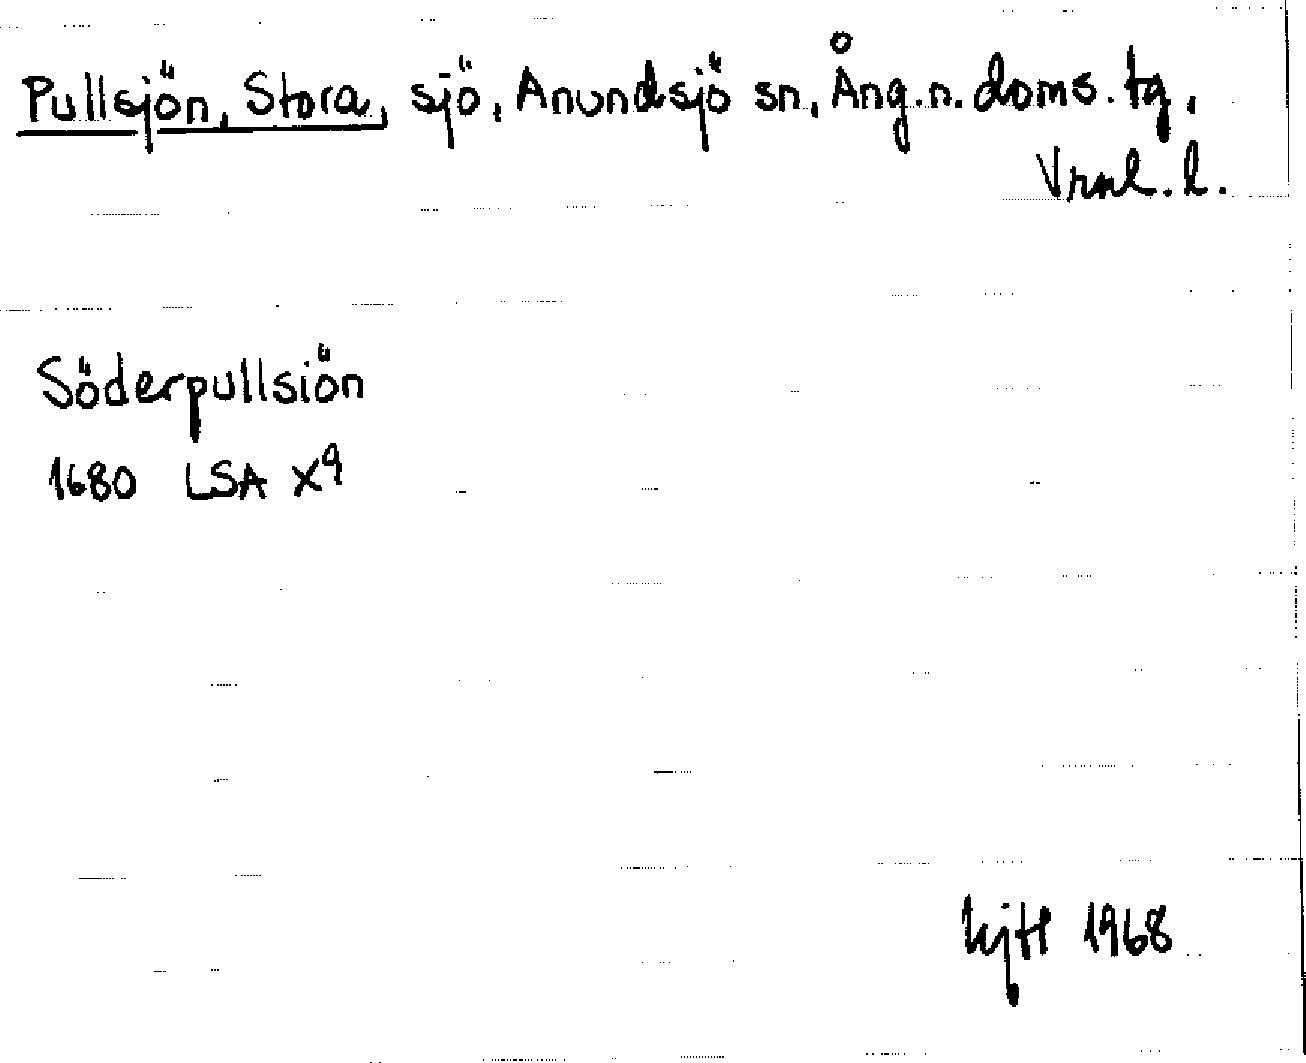 Pullsjön, Stora, sjö, Anundsjö sn, Ång.n. doms. tg,
Vrnl. l.
Söderpullsiön
1680 LSA X9
1968